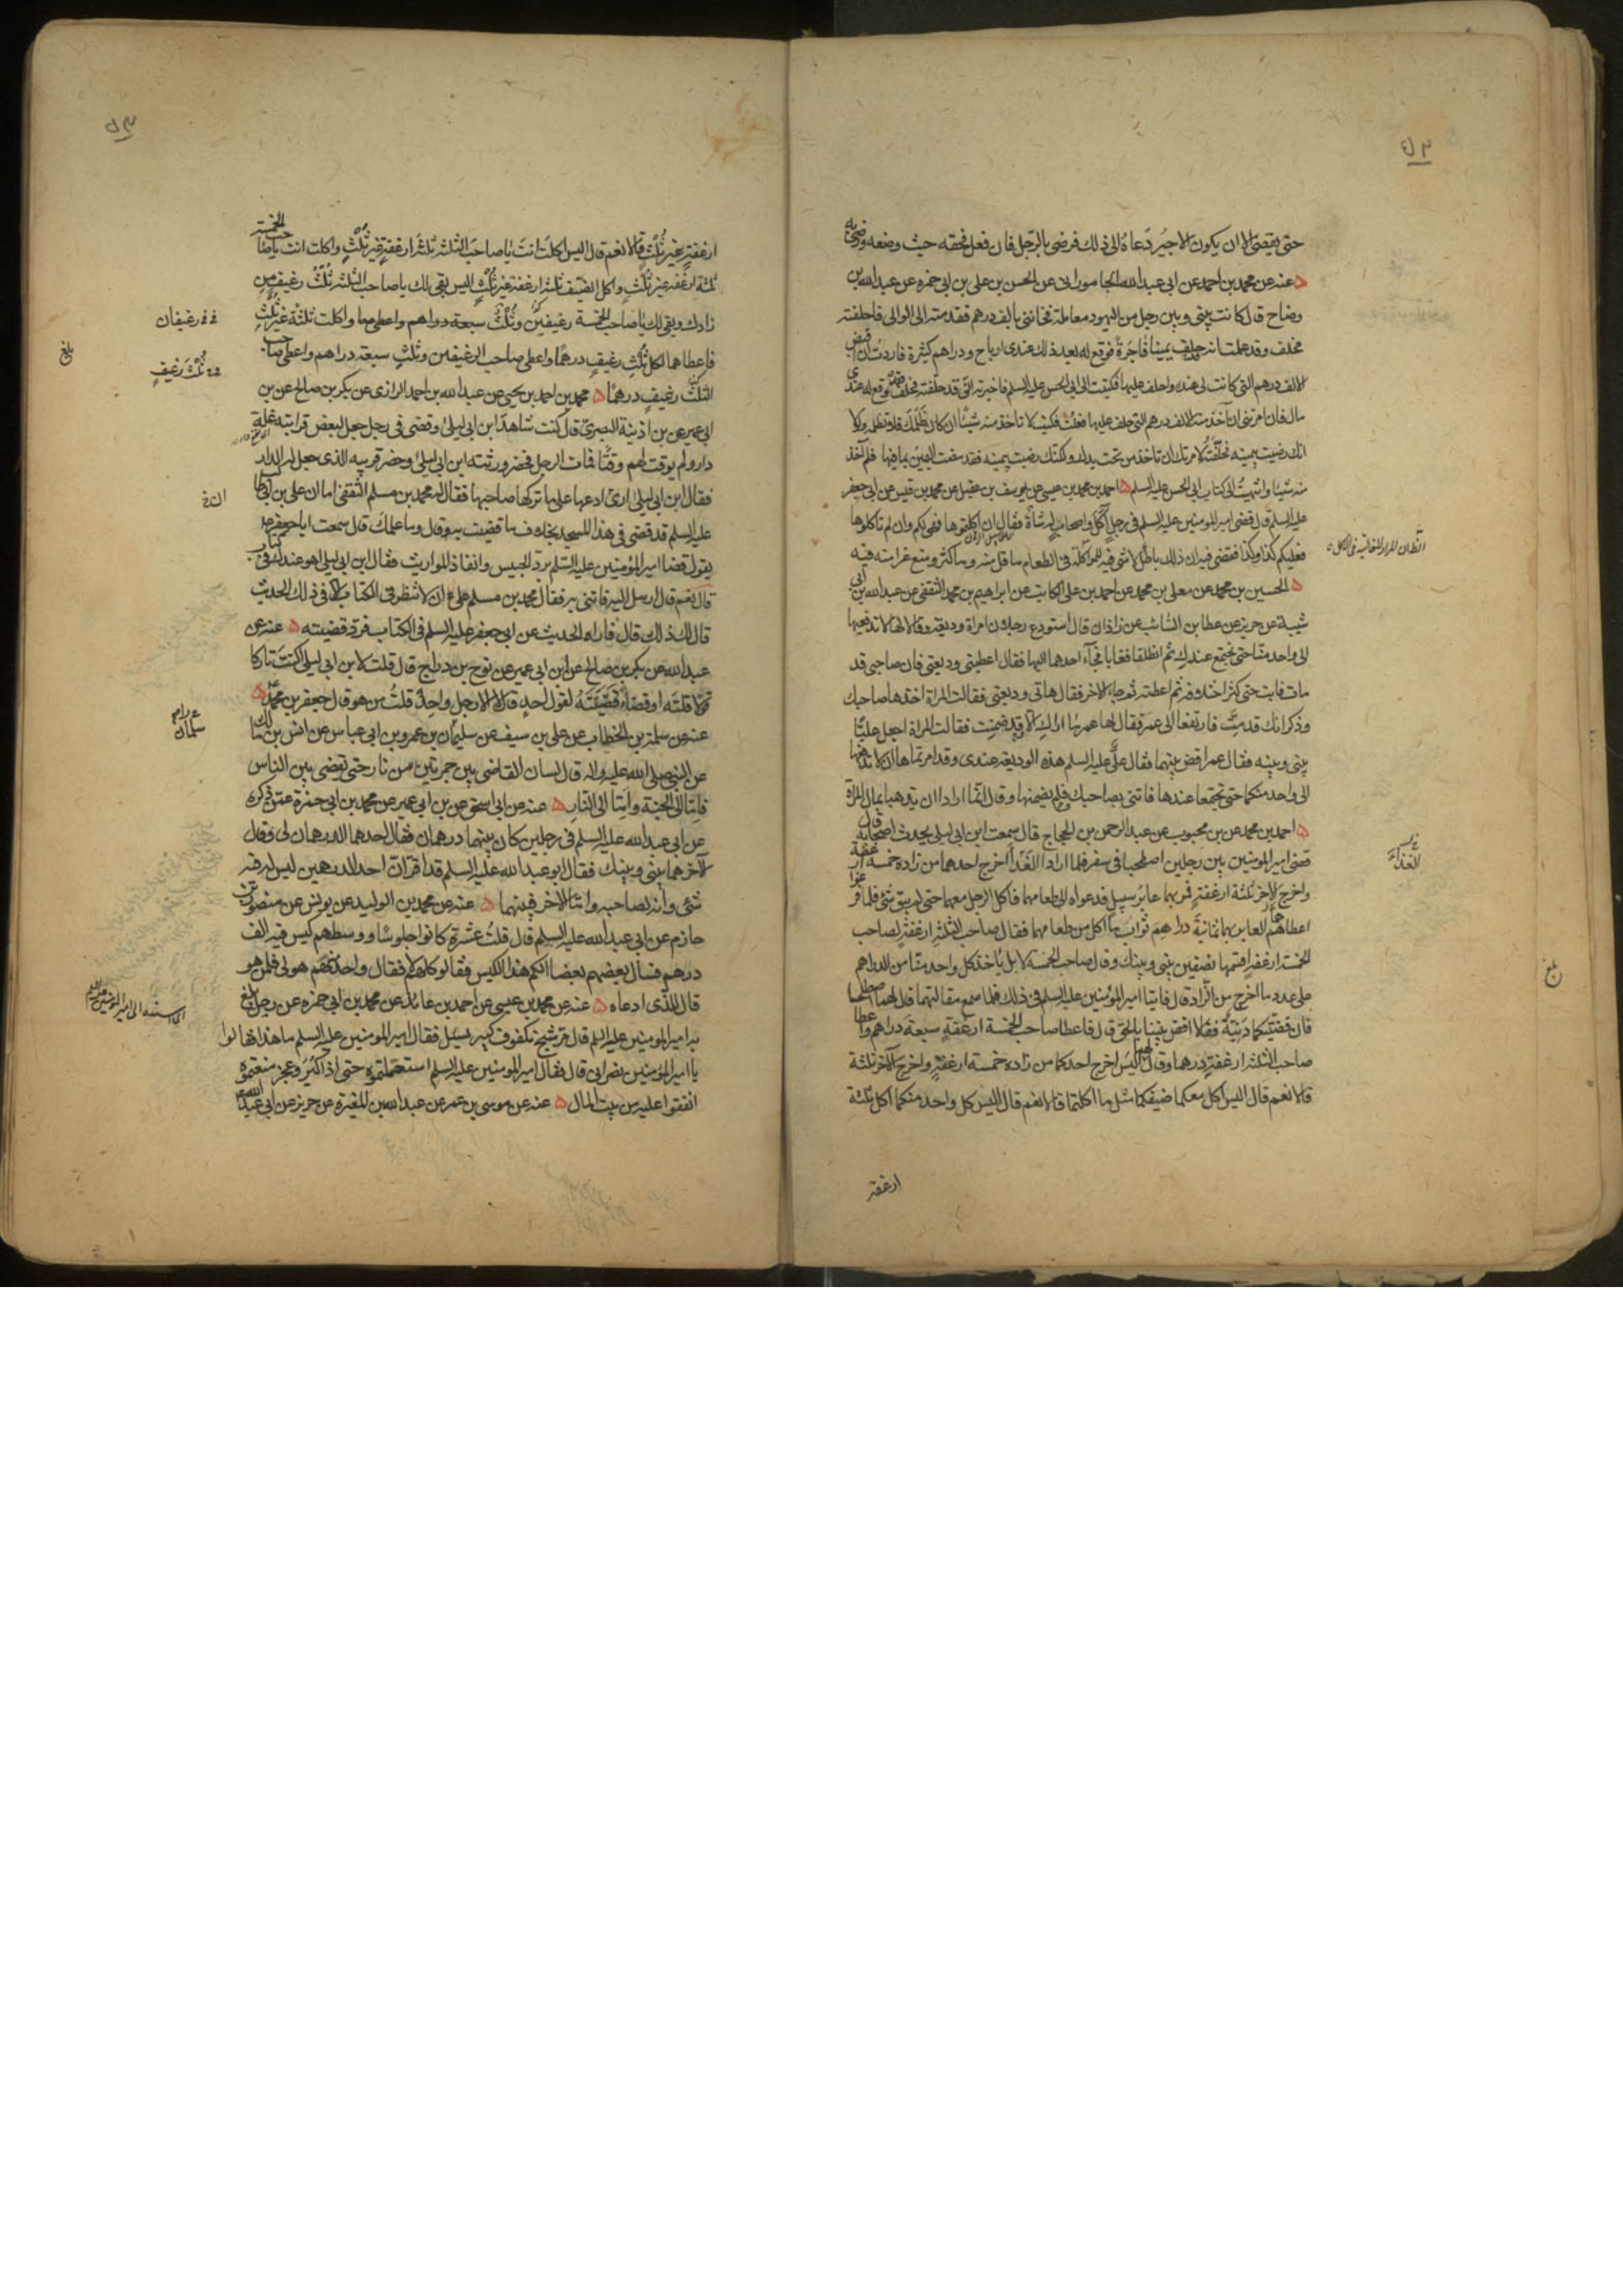 حتى يقضى الا ان يكون الاجير دعاه الى ذلك فرضى بالرجل فان فعل فحقه حيث وضعه ورضى به
عنه عن محمد بن احمد عن ابى عبد الله الجامورانى عن الحسن بن على بن ابى حمزه عن عبد الله بن
وضاح قال كانت بينى وبين رجل من اليهود معاملة فخاننى بالف درهم فقدمته الى الوالى فاحلفته
فحلف وقد علمت انه حلف يمينا فاجرة فوقع له بعد ذلك عندى ارباح ودراهم كثيرة فاردت ان اقبض
الالف درهم التى كانت لى عنده واحلف عليها فكتبت الى ابى الحسن عليه السلم فاخبرته انى قد حلفته فحلف وقد وقع له عندى
مال فان امرتنى ان آخذ منه الالف درهم التى حلف عليها فعلت فكتب لا تاخذ منه شيئا ان كان ظلمك فلا تظلمه ولولا
انك رضيت بيمينه فحلفته لامرتك ان تاخذ من تحت يدك ولكنك رضيت بيمينه فقد مضت اليمين بما فيها فلم آخذ
منه شيئا وانتهيت الى كتاب ابى الحسن عليه السلم احمد بن محمد بن عيسى عن يوسف بن عقيل عن محمد بن قيس عن ابى جعفر
عليه السلم قال قضى امير المومنين عليه السلم فى رجل اكل واصحاب له شاة فقال ان اكلتموها فهى لكم وان لم تاكلوها
فعليكم كذا وكذا فقضى فيه ان ذلك باطل لا شى فيه للمواكلة فى الطعام ما قل منه وما كثر ومنع غرامته فيه
الحسين بن محمد عن معلى بن محمد عن احمد بن على الكاتب عن ابراهيم بن محمد الثقفى عن عبد الله بن ابى
شيبة عن حريز عن عطا بن السائب عن زاذان قال استودع رجلان امراة وديعة وقالا لها لا تدفعيها
الى واحد منا حتى نجتمع عندك ثم انطلقا فغابا فجآء احدهما اليها فقال اعطينى وديعتى فان صاحبى قد
مات فابت حتى كثر اختلافه ثم اعطته ثم جاء الاخر فقال هاتى وديعتى فقالت المراة اخذها صاحبك
وذكر انك قد مت فارتفعا الى عمر فقال لها عمر ما اراك الا وقد ضمنت فقالت المراة اجعل عليا
بينى وبينه فقال عمر اقض بينهما فقال على عليه السلم هذه الوديعة عندى وقد امرتماها ان لا تدفعها
الى واحد منكما حتى تجتمعا عندها فائتنى بصاحبك فلم يضمنها وقال انما ارادا ان يذهبا بمال المراة
احمد بن محمد عن بن محبوب عن عبد الرحمن بن الحجاج قال سمعت ابن ابى ليلى يحدث اصحابه قال
قضى امير المومنين بين رجلين اصطحبا فى سفر فلما ارادا الغدا اخرج احدهما من زاده خمسة ارغفة
واخرج الاخر ثلثة ارغفة فمر بهما عابر سبيل فدعواه الى طعامهما فاكل الرجل معهما حتى لم يبق شئ فلما فرغوا
اعطاهما العابر بهما ثمانية دراهم ثواب ما اكل من طعامهما فقال صاحب الثلثة ارغفة لصاحب
الخمسة ارغفة اقسمها نصفين بينى وبينك وقال صاحب الخمسة لا بل ياخذ كل واحد منا من الدراهم
على عدد ما اخرج من الزاد قال فاتيا امير المؤمنين عليه السلم فى ذلك فلما سمع مقالتهما قال لهما اصطلحا
فان قضيتكما دنية فقالا اقض بيننا بالحق قال فاعطا صاحب الخمسة ارغفة سبعة دراهم واعطا
صاحب الثلثة ارغفة درهما وقال لهما اليس اخرج احدكما من زاده خمسة ارغفة واخرج الاخر ثلثة
قالا نعم قال اليس اكل معكما ضيفكما مثل ما اكلتما قالا نعم قال اليس كل واحد منكما اكل ثلثة
ارغفة
الغداء
بلغ
ارغفة غير ثلث قالا نعم قال اليس اكلت انت يا صاحب الثلثة ثلثة ارغفة غير ثلث واكلت انت يا صاحب الخمسة
ثلثة ارغفة غير ثلث واكل الضيف ثلثة ارغفة غير ثلث اليس بقى لك يا صاحب الثلثة ثلث رغيف من
زادك وبقى لك يا صاحب الخمسة رغيفين وثلث سبعة دراهم واعطى واكلت ثلثة غير ثلث
فاعطاهما لكل ثلث رغيف درهما واعطى صاحب الرغيفين وثلث سبعة دراهم واعطى صاحب
الثلث رغيف درهما محمد بن احمد بن يحيى عن عبد الله بن احمد الرازى عن بكر بن صالح عن بن
ابى عمير عن بن اذينة البصرى قال كنت شاهدا بن ابى ليلى وقضى فى رجل جعل لبعض قرابته غلة
دار ولم يوقت لهم وقتا فمات الرجل فحضر ورثته ابن ابى ليلى وحضر قريبه الذى جعل له الدار
فقال ابن ابى ليلى ارى ادعها على ما تركها صاحبها فقال له محمد بن مسلم الثقفى اما ان على بن ابى طالب
عليه السلم قد قضى فى هذا المسجد بخلاف ما قضيت به وقال وما علمك قال سمعت ابا جعفر محمد
يقول قضا امير المؤمنين عليه السلم برد الحبيس وانفاذ المواريث فقال ابن ابى ليلى هو عندك فى كتاب
قال نعم قال ارسل اليه فائتنى به فقال محمد بن مسلم على ان لا تنظر فى الكتاب الا فى ذلك الحديث
قال لك ذلك قال فاراه الحديث عن ابى جعفر عليه السلم فى الكتاب فرد قضيته عنه عن
عبد الله عن بكر بن صالح عن ابن ابى عمير عن نوح بن دراج قال قلت لابن ابى ليلى اكنت تاركا
قولا قلته او قضاء قضيته لقول احد قال لا الا رجل واحد قلت من هو قال جعفر بن محمد
عنه عن سلمة بن الخطاب عن على بن سيف عن سليمان بن عمرو بن ابى عباس عن انس بن مالك
عن النبى صلى الله عليه واله قال لسان القاضى بين جمرتين من نار حتى يقضى بين الناس
فامّا الى الجنة وامّا الى النار عنه عن ابى اسحق عن بن ابى عمير عن محمد بن ابى حمزة عمن ذكره
عن ابى عبد الله عليه السلم فى رجلين كان بينهما درهمان فقال احدهما الدرهمان لى وقال
الاخر هما بينى وبينك فقال ابو عبد الله عليه السلم قد اقر ان احد الدرهمين ليس له فيه
شئ وانه لصاحبه واما الاخر فبينهما عنه عن محمد بن الوليد عن يونس عن منصور بن
حازم عن ابى عبد الله عليه السلم قال قلت عشرة كانوا جلوسا ووسطهم كيس فيه الف
درهم فسال بعضهم بعضا الكم هذا الكيس فقالوا كلهم لا فقال واحد منهم هو لى فلمن هو
قال للذى ادعاه عنه عن محمد بن عيسى عن احمد بن عائذ عن محمد بن ابى حمزه عن رجل بلغ
به امير المومنين عليه السلم قال مر شيخ مكفوف كبير يسئل فقال امير المومنين عليه السلم ما هذا قالوا
يا امير المؤمنين نصرانى قال فقال امير المومنين عليه السلم استعملتموه حتى اذا كبر وعجز منعتموه
انفقوا عليه من بيت المال عنه عن موسى بن عمر عن عبد الله بن المغيرة عن حريز عن ابى عبيدة
رغيفان
ثلث رغيف
بلغ
سلمان